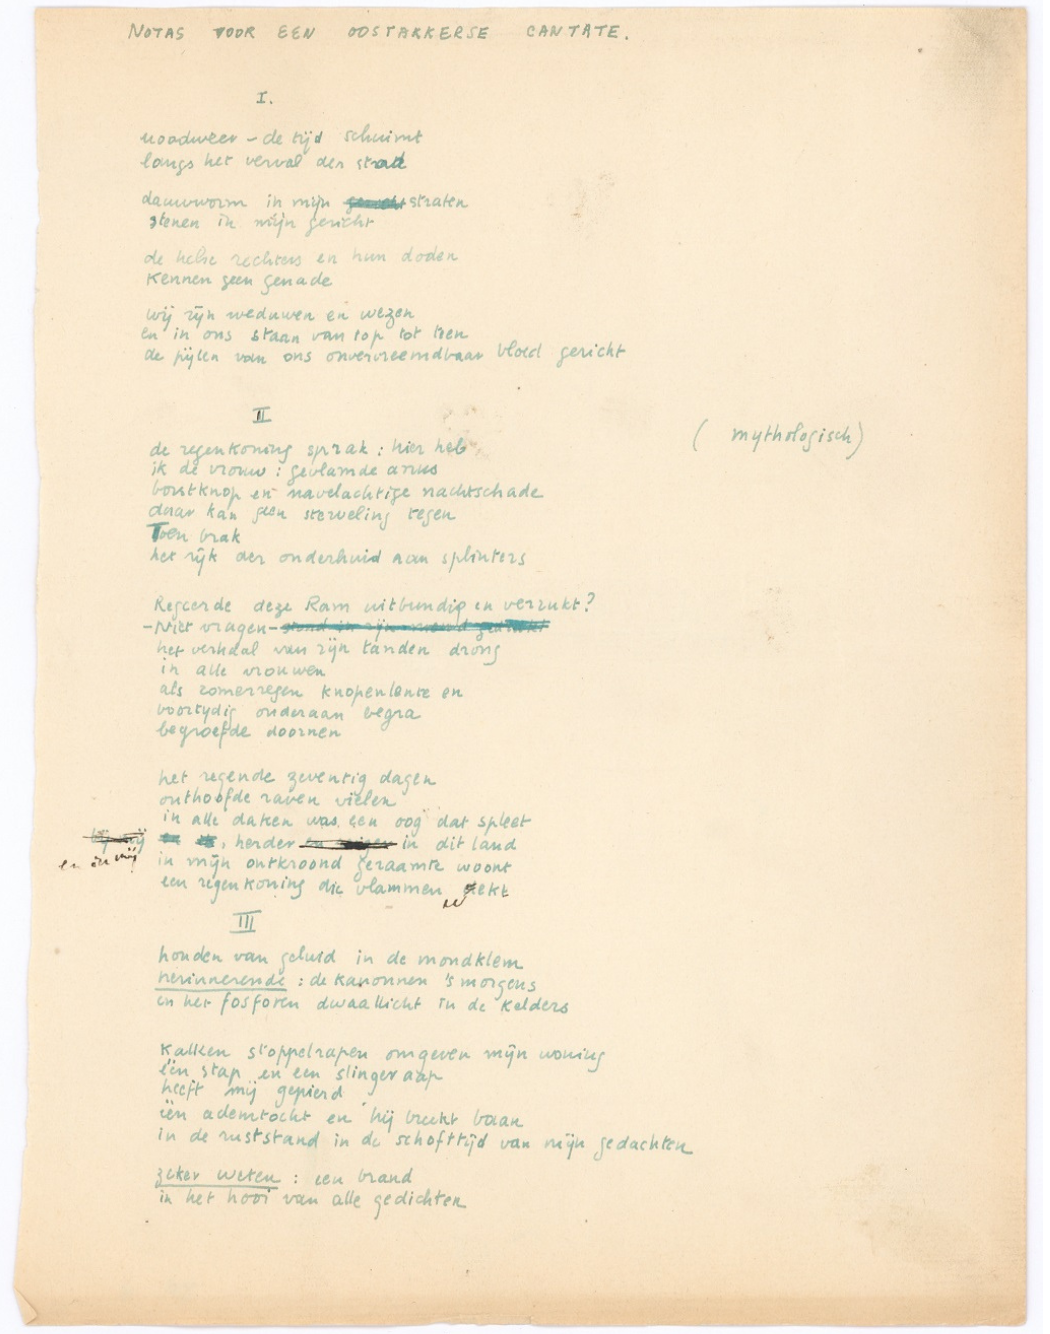 NOTAS VOOR EEN OOSTAKKERSE CANTATE.
I.
noodweer – de tijd schuimt
langs het verval der stad
dauwworm in mijn straten
stenen in mijn gericht
de helse rechters en hun doden
kennen geen genade
wij zijn weduwen en wezen
en in ons staan van top tot teen
de pijlen van ons onvervreemdbaar bloed gericht
II
(mythologisch)
de regenkoning sprak : hier heb
ik de vrouw : gevlamde anus
borstknop en navelachtige nachtschade
daar kan geen sterveling tegen
Toen brak
het rijk der onderhuid aan splinters
Regeerde deze Ram uitbundig en verrukt?
– Niet vragen –
het verhaal van zijn tanden drong
in alle vrouwen
als zomerregen knopenlente en
voortydig onderaan begra
begroefde doornen
het regende zeventig dagen
onthoofde raven vielen
in alle daken was een oog dat spleet
, herder in dit land
en in mij
in mijn ontkroond geraamte woont
een regenkoning die vlammen wekt
III
honden van geluid in de mondklem
herinnerende : de kanonnen 's morgens
en het fosforen dwaallicht in de kelders
Kalken stoppelrapen omgeven mijn woning
één stap en een slingeraap
heeft mij gepierd
één ademtocht en hij breekt baan
in de ruststand in de schofttijd van mijn gedachten
zeker weten : een brand
in het hooi van alle gedichten